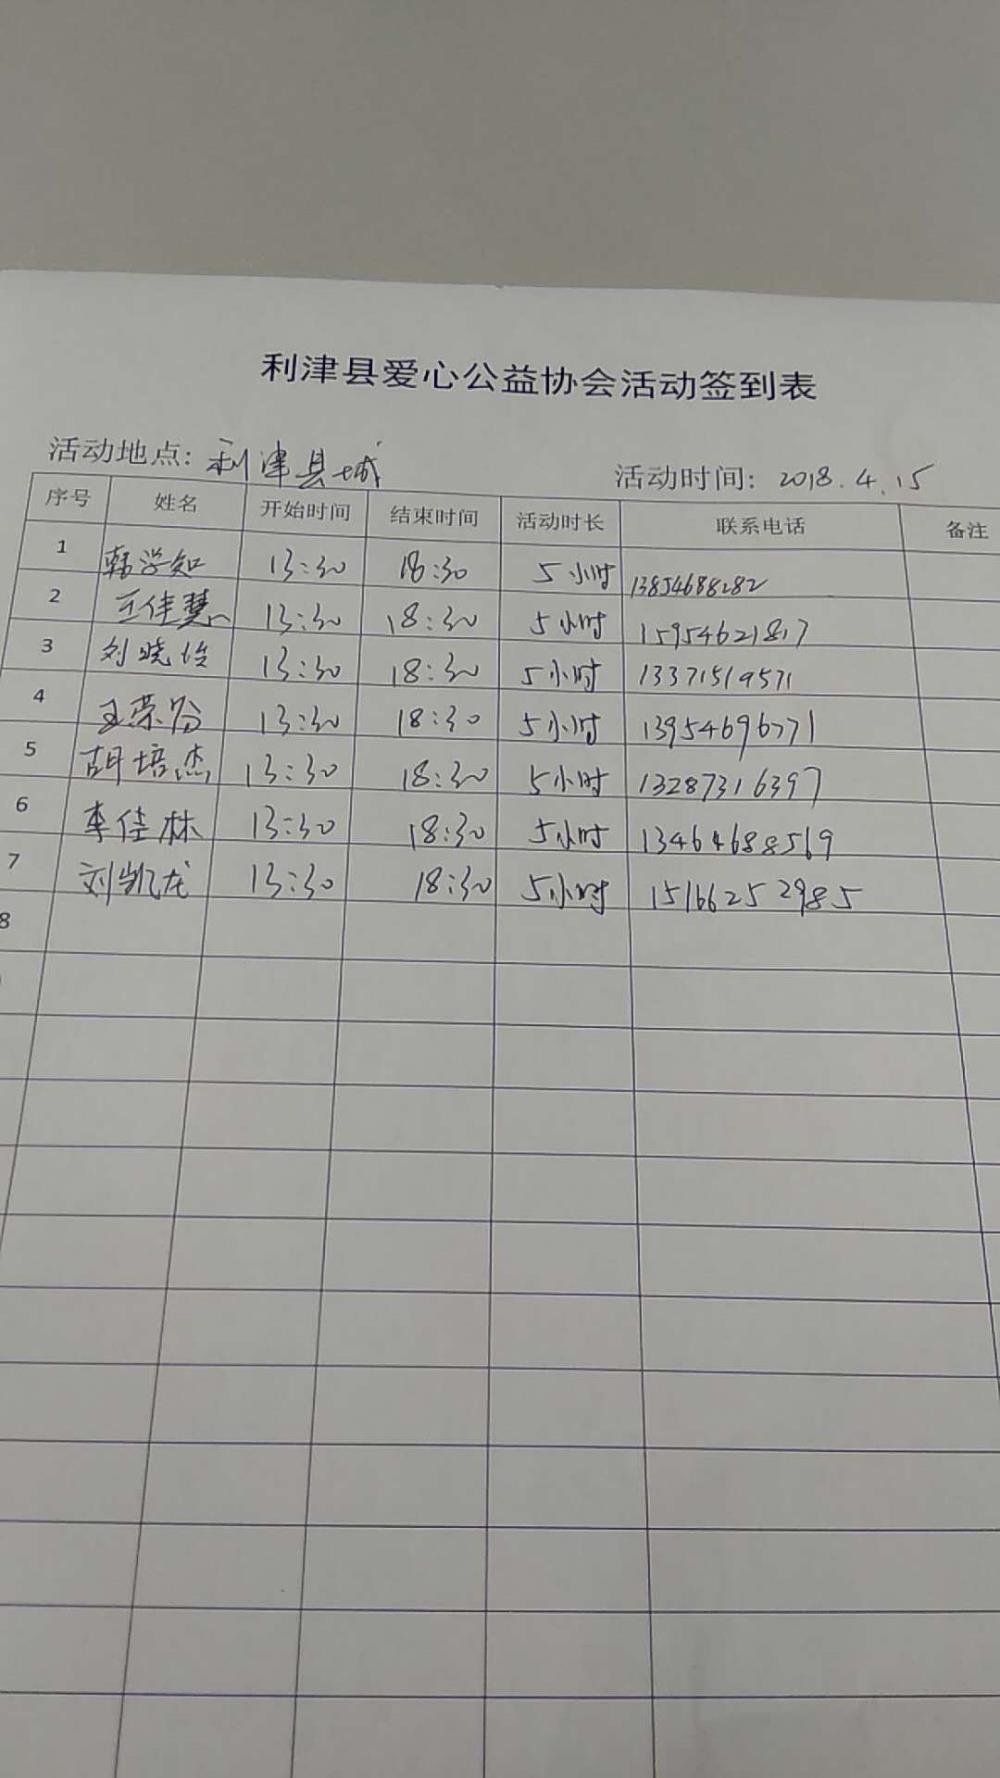 利津县爱心公益协会活动签到表
活动地点: 利津县城 活动时间: 2018.4.15
序号 姓名 开始时间 结束时间 活动时长 联系电话 备注
1 韩学知 13:30 18:30 5小时 13854688282
2 王佳慧 13:30 18:30 5小时 15954621817
3 刘晓怡 13:30 18:30 5小时 13371519571
4 王荣 13:30 18:30 5小时 13954696771
5 胡培杰 13:30 18:30 5小时 13287316397
6 李佳林 13:30 18:30 5小时 13464688569
7 刘凯龙 13:30 18:30 5小时 15166252985
8